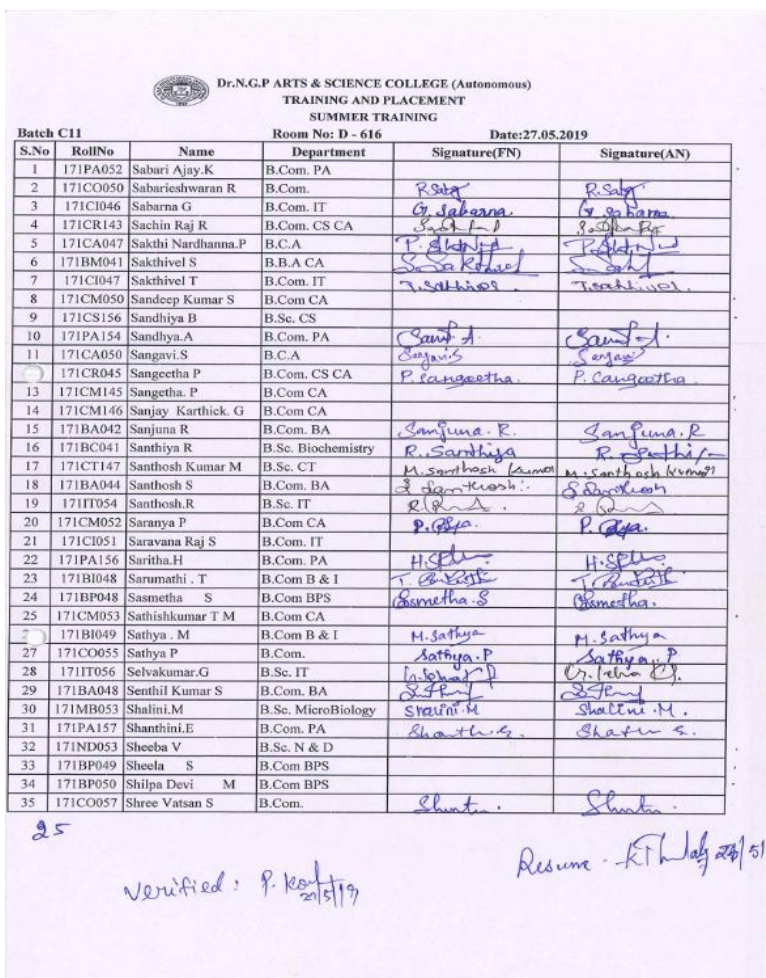 Dr.N.G.P ARTS & SCIENCE COLLEGE (Autonomous)
TRAINING AND PLACEMENT
SUMMER TRAINING
Batch C11 Room No: D - 616 Date:27.05.2019
S.No RollNo Name Department Signature(FN) Signature(AN)
1 171PA052 Sabari Ajay.K B.Com. PA
2 171CO050 Sabarieshwaran R B.Com.
3 171CI046 Sabarna G B.Com. IT G. Sabarna G. Sabarna
4 171CR143 Sachin Raj R B.Com. CS CA
5 171CA047 Sakthi Nardhanna.P B.C.A
6 171BM041 Sakthivel S B.B.A CA S. Sakthivel
7 171CI047 Sakthivel T B.Com. IT T. Sakthivel T. Sakthivel
8 171CM050 Sandeep Kumar S B.Com CA
9 171CS156 Sandhiya B B.Sc. CS
10 171PA154 Sandhya.A B.Com. PA
11 171CA050 Sangavi.S B.C.A Sangavi.S Sangavi
171CR045 Sangeetha P B.Com. CS CA P. Sangeetha. P. Sangeetha
13 171CM145 Sangetha. P B.Com CA
14 171CM146 Sanjay Karthick. G B.Com CA
15 171BA042 Sanjuna R B.Com. BA Sanjuna. R. Sanjuna. R
16 171BC041 Santhiya R B.Sc. Biochemistry R. Santhiya
17 171CT147 Santhosh Kumar M B.Sc. CT M. Santhosh Kumar M. Santhosh Kumar
18 171BA044 Santhosh S B.Com. BA S Santhosh S Santhosh
19 171IT054 Santhosh.R B.Sc. IT
20 171CM052 Saranya P B.Com CA
21 171CI051 Saravana Raj S B.Com. IT
22 171PA156 Saritha.H B.Com. PA
23 171BI048 Sarumathi . T B.Com B & I
24 171BP048 Sasmetha S B.Com BPS Sasmetha. S Sasmetha.
25 171CM053 Sathishkumar T M B.Com CA
171BI049 Sathya . M B.Com B & I M. Sathya M. Sathya
27 171CO055 Sathya P B.Com. Sathya. P Sathya. P
28 171IT056 Selvakumar.G B.Sc. IT
29 171BA048 Senthil Kumar S B.Com. BA
30 171MB053 Shalini.M B.Sc. MicroBiology Shalini.M Shalini.M.
31 171PA157 Shanthini.E B.Com. PA
32 171ND053 Sheeba V B.Sc. N & D
33 171BP049 Sheela S B.Com BPS
34 171BP050 Shilpa Devi M B.Com BPS
35 171CO057 Shree Vatsan S B.Com.
25
Resume -
Verified: P.
27/5/19